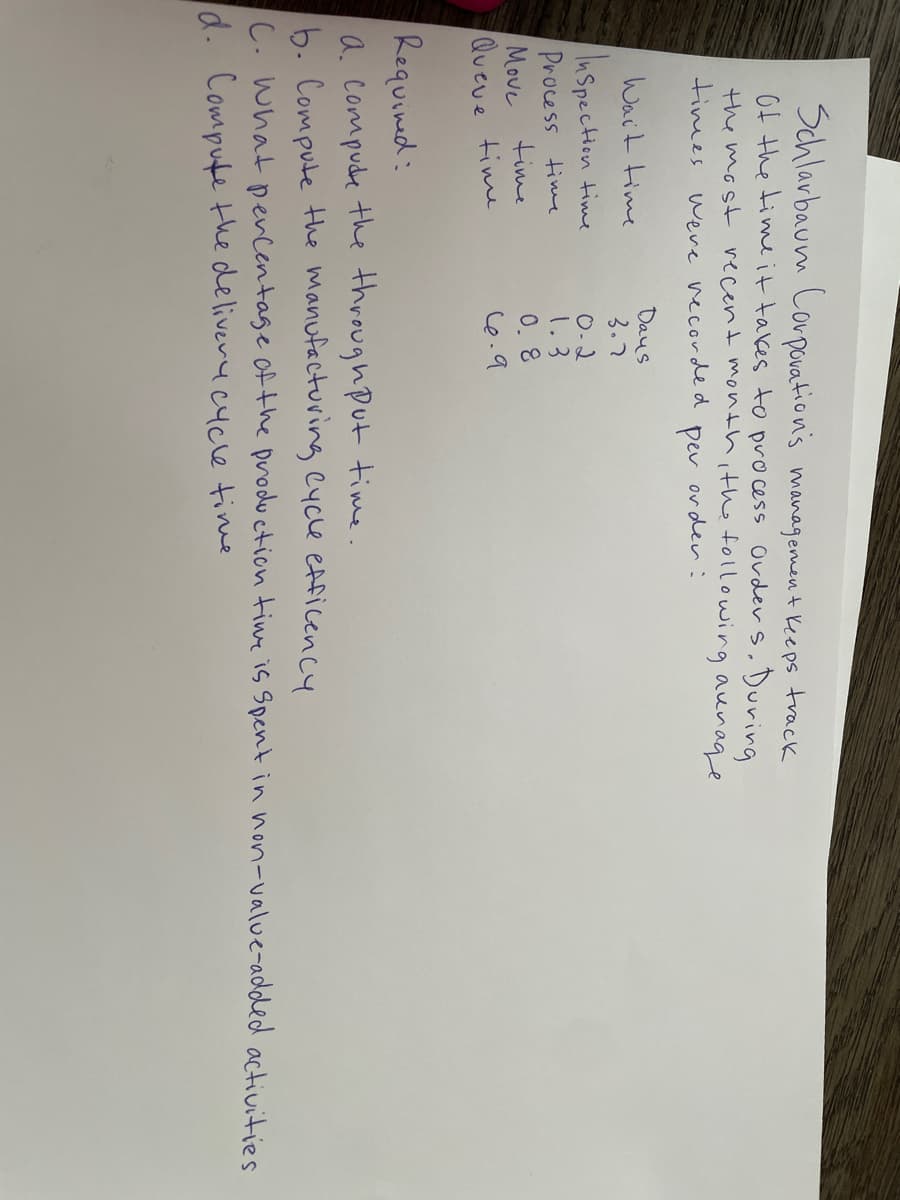 Schlarbaum Corporation's management keeps track
Of the time it takes to process orders. During
the most recent month, the following average
times were recorded per order:
Days
Wait time 3.7
Inspection time 0.2
Process time 1.3
Move time 0.8
Queue time 6.9
Required:
a. Compute the throughput time.
b. Compute the manufacturing cycle efficency
C. What percentage of the production time is spent in non-value-added activities
d. Compute the delivery cycle time